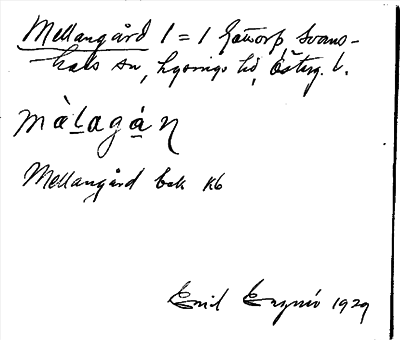 Mellangård 1 = 1 Götorp Svans-
hals sn, Lysings hd, Österg. l.
màlagán
Mellangård bek Kb
Emil 1929